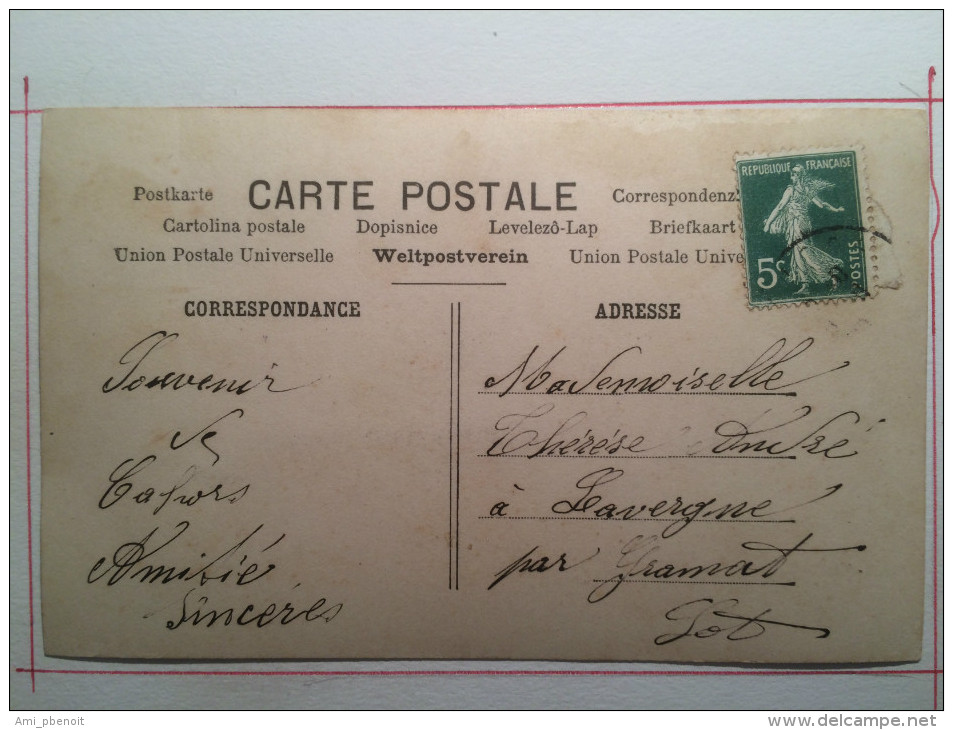 REPUBLIQUE FRANÇAISE
5c
POSTES
Postkarte CARTE POSTALE Correspondenz
Cartolina postale Dopisnice Levelezô-Lap Briefkaart
Union Postale Universelle Weltpostverein Union Postale Unive
CORRESPONDANCE
Souvenir
de
Cahors
Amitié
Sincères
ADRESSE
Mademoiselle
Thérèse André
à Lavergne
par Gramat
Lot
Ami_pbenoit
www.delcampe.net